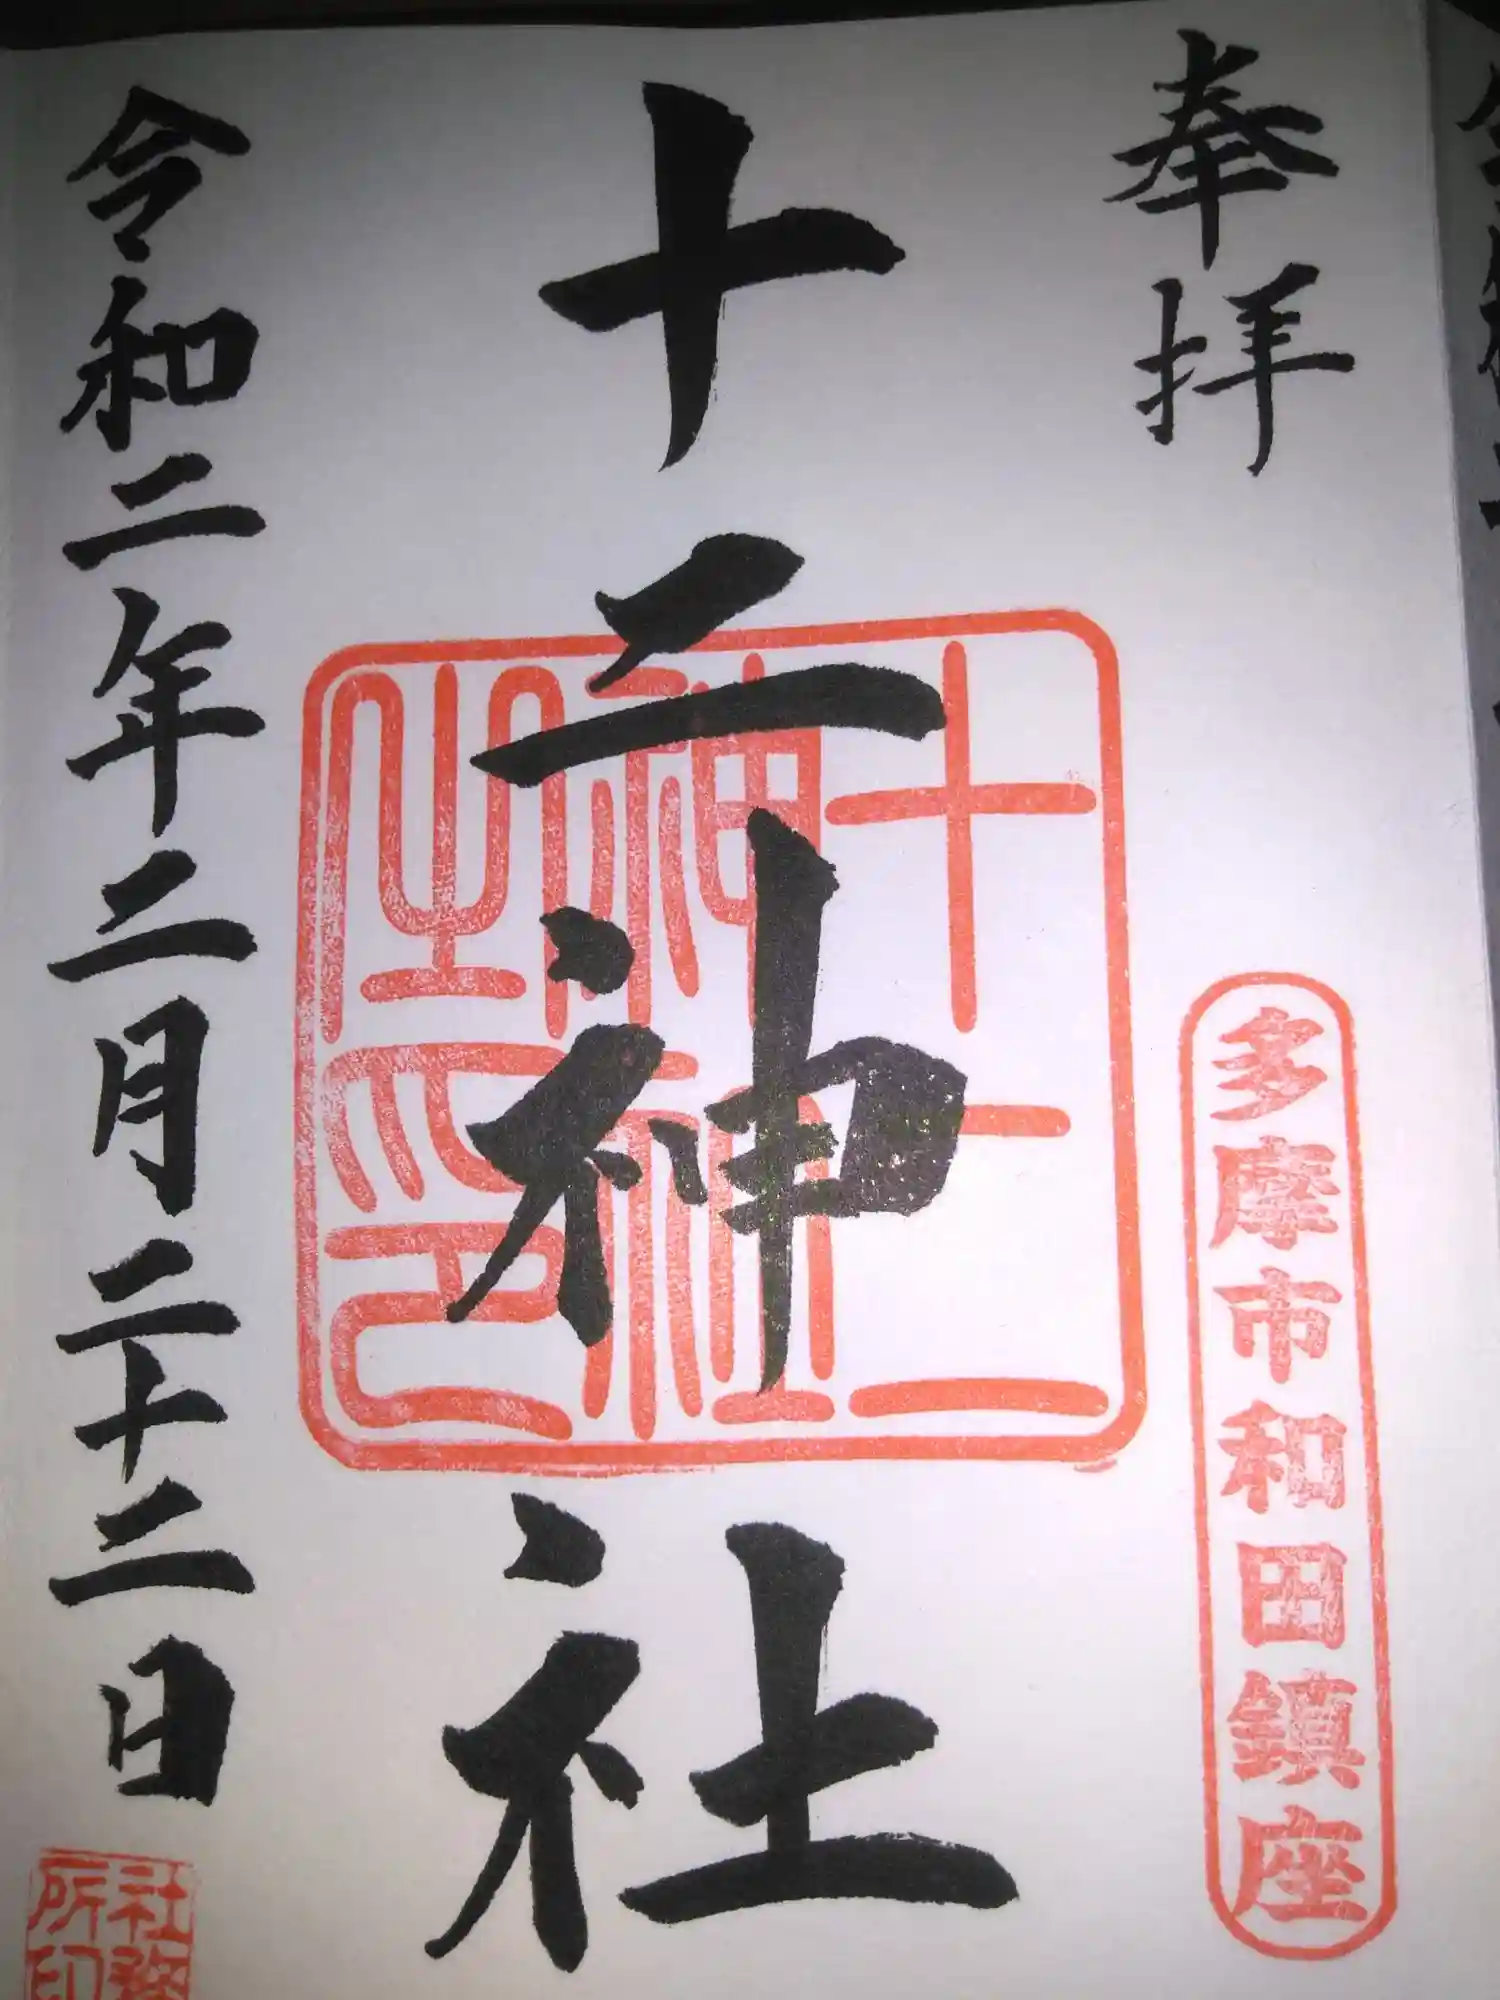 奉拝
多摩市和田鎮座
十二神社
十二神社之印
令和二年二月二十二日
社務所印